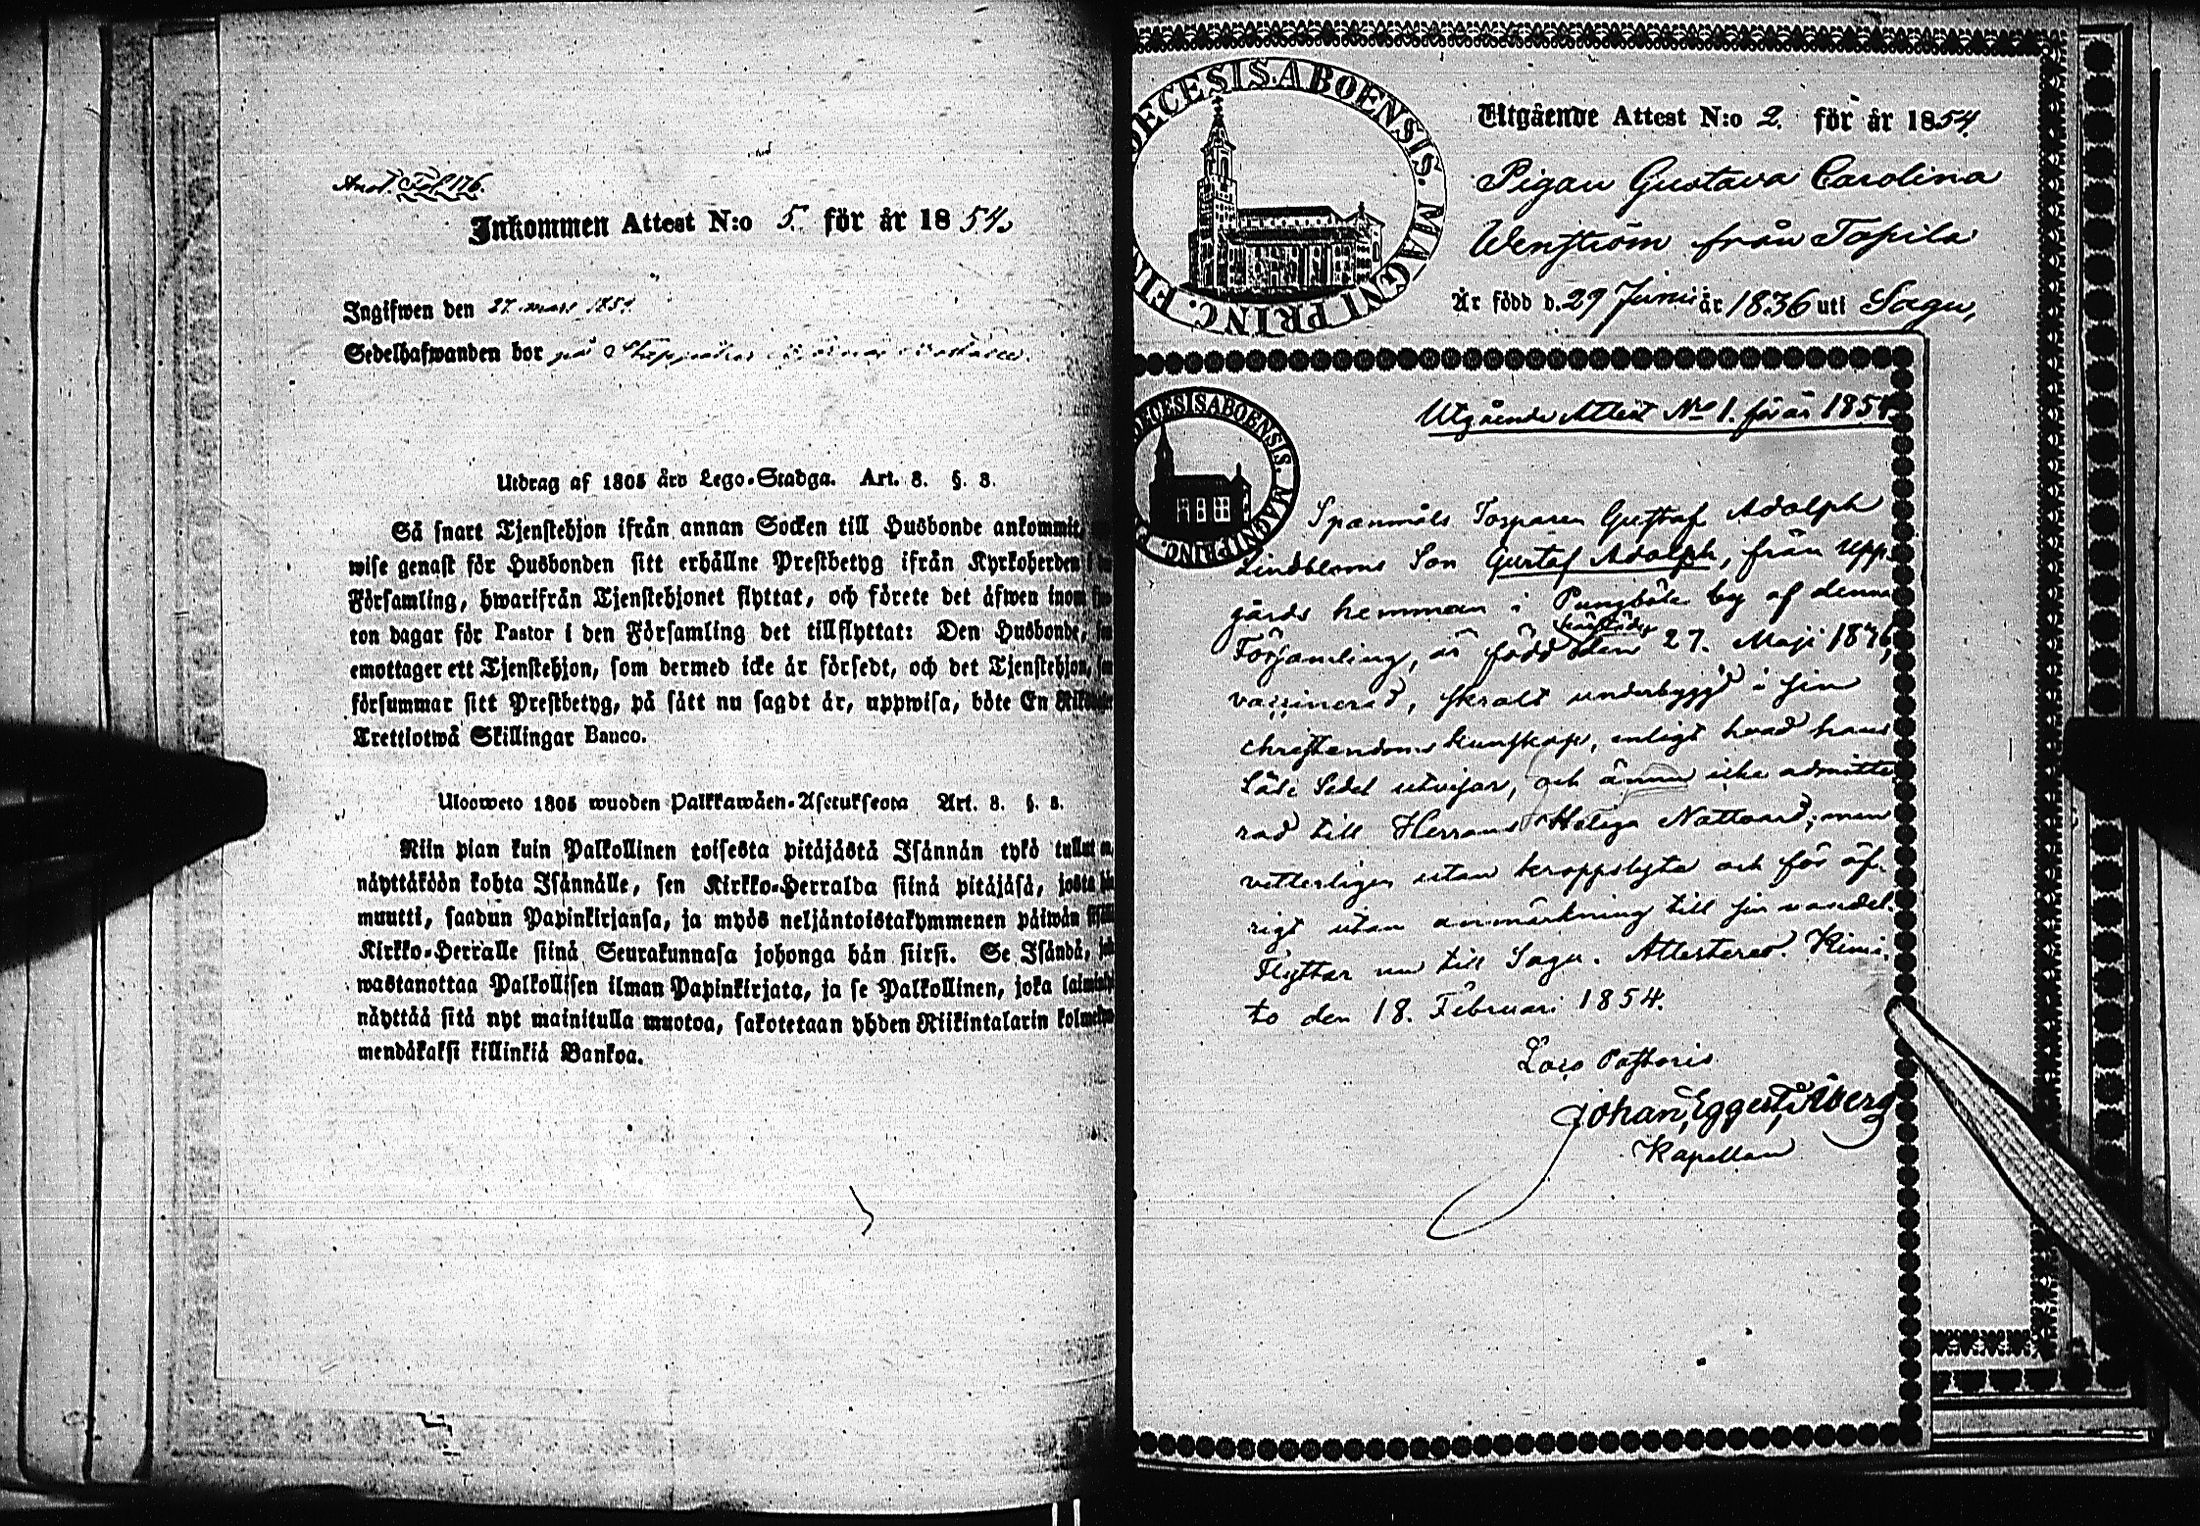 Anot. Fol. 176.
Inkommen Attest N:o 5. för år 1854.
Ingifwen den 27. mars 1854.
Sedelhafwanden bor på
Utdrag af 1805 års Lego-Stadga. Art. 8. §. 8.
Så snart Tjenstehjon ifrån annan Socken till Husbonde ankommit,
wise genast för Husbonden sitt erhållne Prestbetyg ifrån Kyrkoherden i
Församling, hwarifrån Tjenstehjonet flyttat, och förete det äfwen inom
ton dagar för Pastor i den Församling det tillflyttat: Den Husbonde,
emottager ett Tjenstehjon, som dermed icke är försedt, och det Tjenstehjon,
försummar sitt Prestbetyg, på sätt nu sagdt är, uppwisa, böte En
Trettiotwå Skillingar Banco.
Uloswето 1805 wuoden Palkkawäen-Asetuksesta Art. 8. §. 8.
Niin pian kuin Palkollinen toisesta pitäjästä Isännän tykö tullut
näyttäköön kohta Isännälle, sen Kirkko-Herralda siinä pitäjäsä, josta
muutti, saadun Papinkirjansa, ja myös neljäntoistakymmenen päiwän
Kirkko-Herralle siinä Seurakunnasa johonga hän siirsi. Se Isändä,
wastanottaa Palkollisen ilman Papinkirjata, ja se Palkollinen, joka
näyttää sitä nyt mainitulla muotoa, sakotetaan yhden Riikintalarin
mendäkaksi killinkiä Bankoa.
DECESIS ABOENSIS. MAGNI PRINC.
Utgående Attest N:o 2. för år 1854.
Pigan Gustava Carolina
Wenström från Torpila
Är född d. 29 Junii år 1836 uti Sagu,
DECESIS ABOENSIS. MAGNI PRINC.
Utgående Attest No 1. för år 1854
Spanmåls Torparen Gustaf Adolph
Lindbloms Son Gustaf Adolph, från Upp-
gårds hemman i Pungböle by af denna
Församling, är född den 27. Maji
vaccinerad, skralt underbyggd i sin
christendoms kunskap, enligt hvad hans
Läse Sedel utvisar, och ännu icke admitte-
rad till Herrans Heliga Nattvard; men
vetterligen utan kroppslyte och för öf-
rigt utan anmärkning till sin vandel.
Flyttar nu till Sagu. Attesteras. Kimi-
to den 18. Februari 1854.
Loco Pastoris
Johan Eggert Åberg
Kapellan